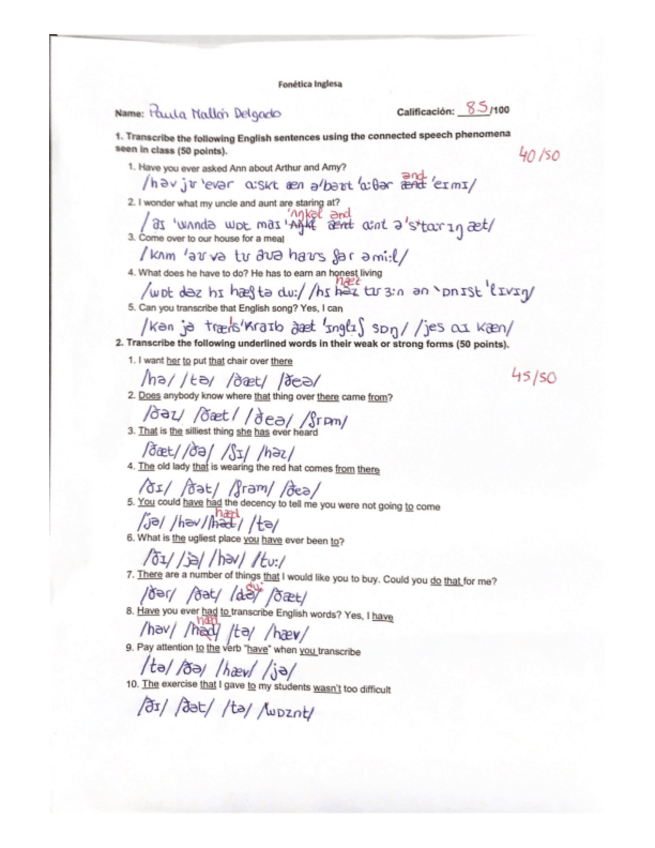 Fonética Inglesa
Name: Paula Mallón Delgado Calificación: 85/100
1. Transcribe the following English sentences using the connected speech phenomena
seen in class (50 points).
40/50
1. Have you ever asked Ann about Arthur and Amy?
and
/həv jʊ 'evər ɑːskt æn ə'baʊt 'ɑːθər ænd 'eɪmɪ/
2. I wonder what my uncle and aunt are staring at?
'ʌŋkəl ənd
/aɪ 'wʌndə wɒt maɪ ænt ɑːnt ə 'starɪŋ æt/
3. Come over to our house for a meal
/kʌm 'əʊvə tʊ aʊə haʊs fər ə miːl/
4. What does he have to do? He has to earn an honest living
hæz
/wɒt dəz hɪ hæf tə duː/ /hɪ həz tʊ ɜːn ən 'ɒnɪst 'lɪvɪŋ/
5. Can you transcribe that English song? Yes, I can
/kən jə træns'kraɪb ðæt 'ɪŋglɪʃ sɒŋ/ /jes aɪ kæn/
2. Transcribe the following underlined words in their weak or strong forms (50 points).
1. I want her to put that chair over there
45/50
/hə/ /tə/ /ðæt/ /ðeə/
2. Does anybody know where that thing over there came from?
/ðəz/ /ðæt/ /ðeə/ /frɒm/
3. That is the silliest thing she has ever heard
/ðæt/ /ðə/ /ʃɪ/ /həz/
4. The old lady that is wearing the red hat comes from there
/ðɪ/ /ðət/ /frəm/ /ðeə/
5. You could have had the decency to tell me you were not going to come
hæd
/jə/ /həv/ /həd/ /tə/
6. What is the ugliest place you have ever been to?
/ðɪ/ /jə/ /həv/ /tuː/
7. There are a number of things that I would like you to buy. Could you do that for me?
duː
/ðər/ /ðət/ /də/ /ðæt/
8. Have you ever had to transcribe English words? Yes, I have
hæd
/həv/ /həd/ /tə/ /hæv/
9. Pay attention to the verb "have" when you transcribe
/tə/ /ðə/ /hæv/ /jə/
10. The exercise that I gave to my students wasn't too difficult
/ðɪ/ /ðət/ /tə/ /wɒznt/